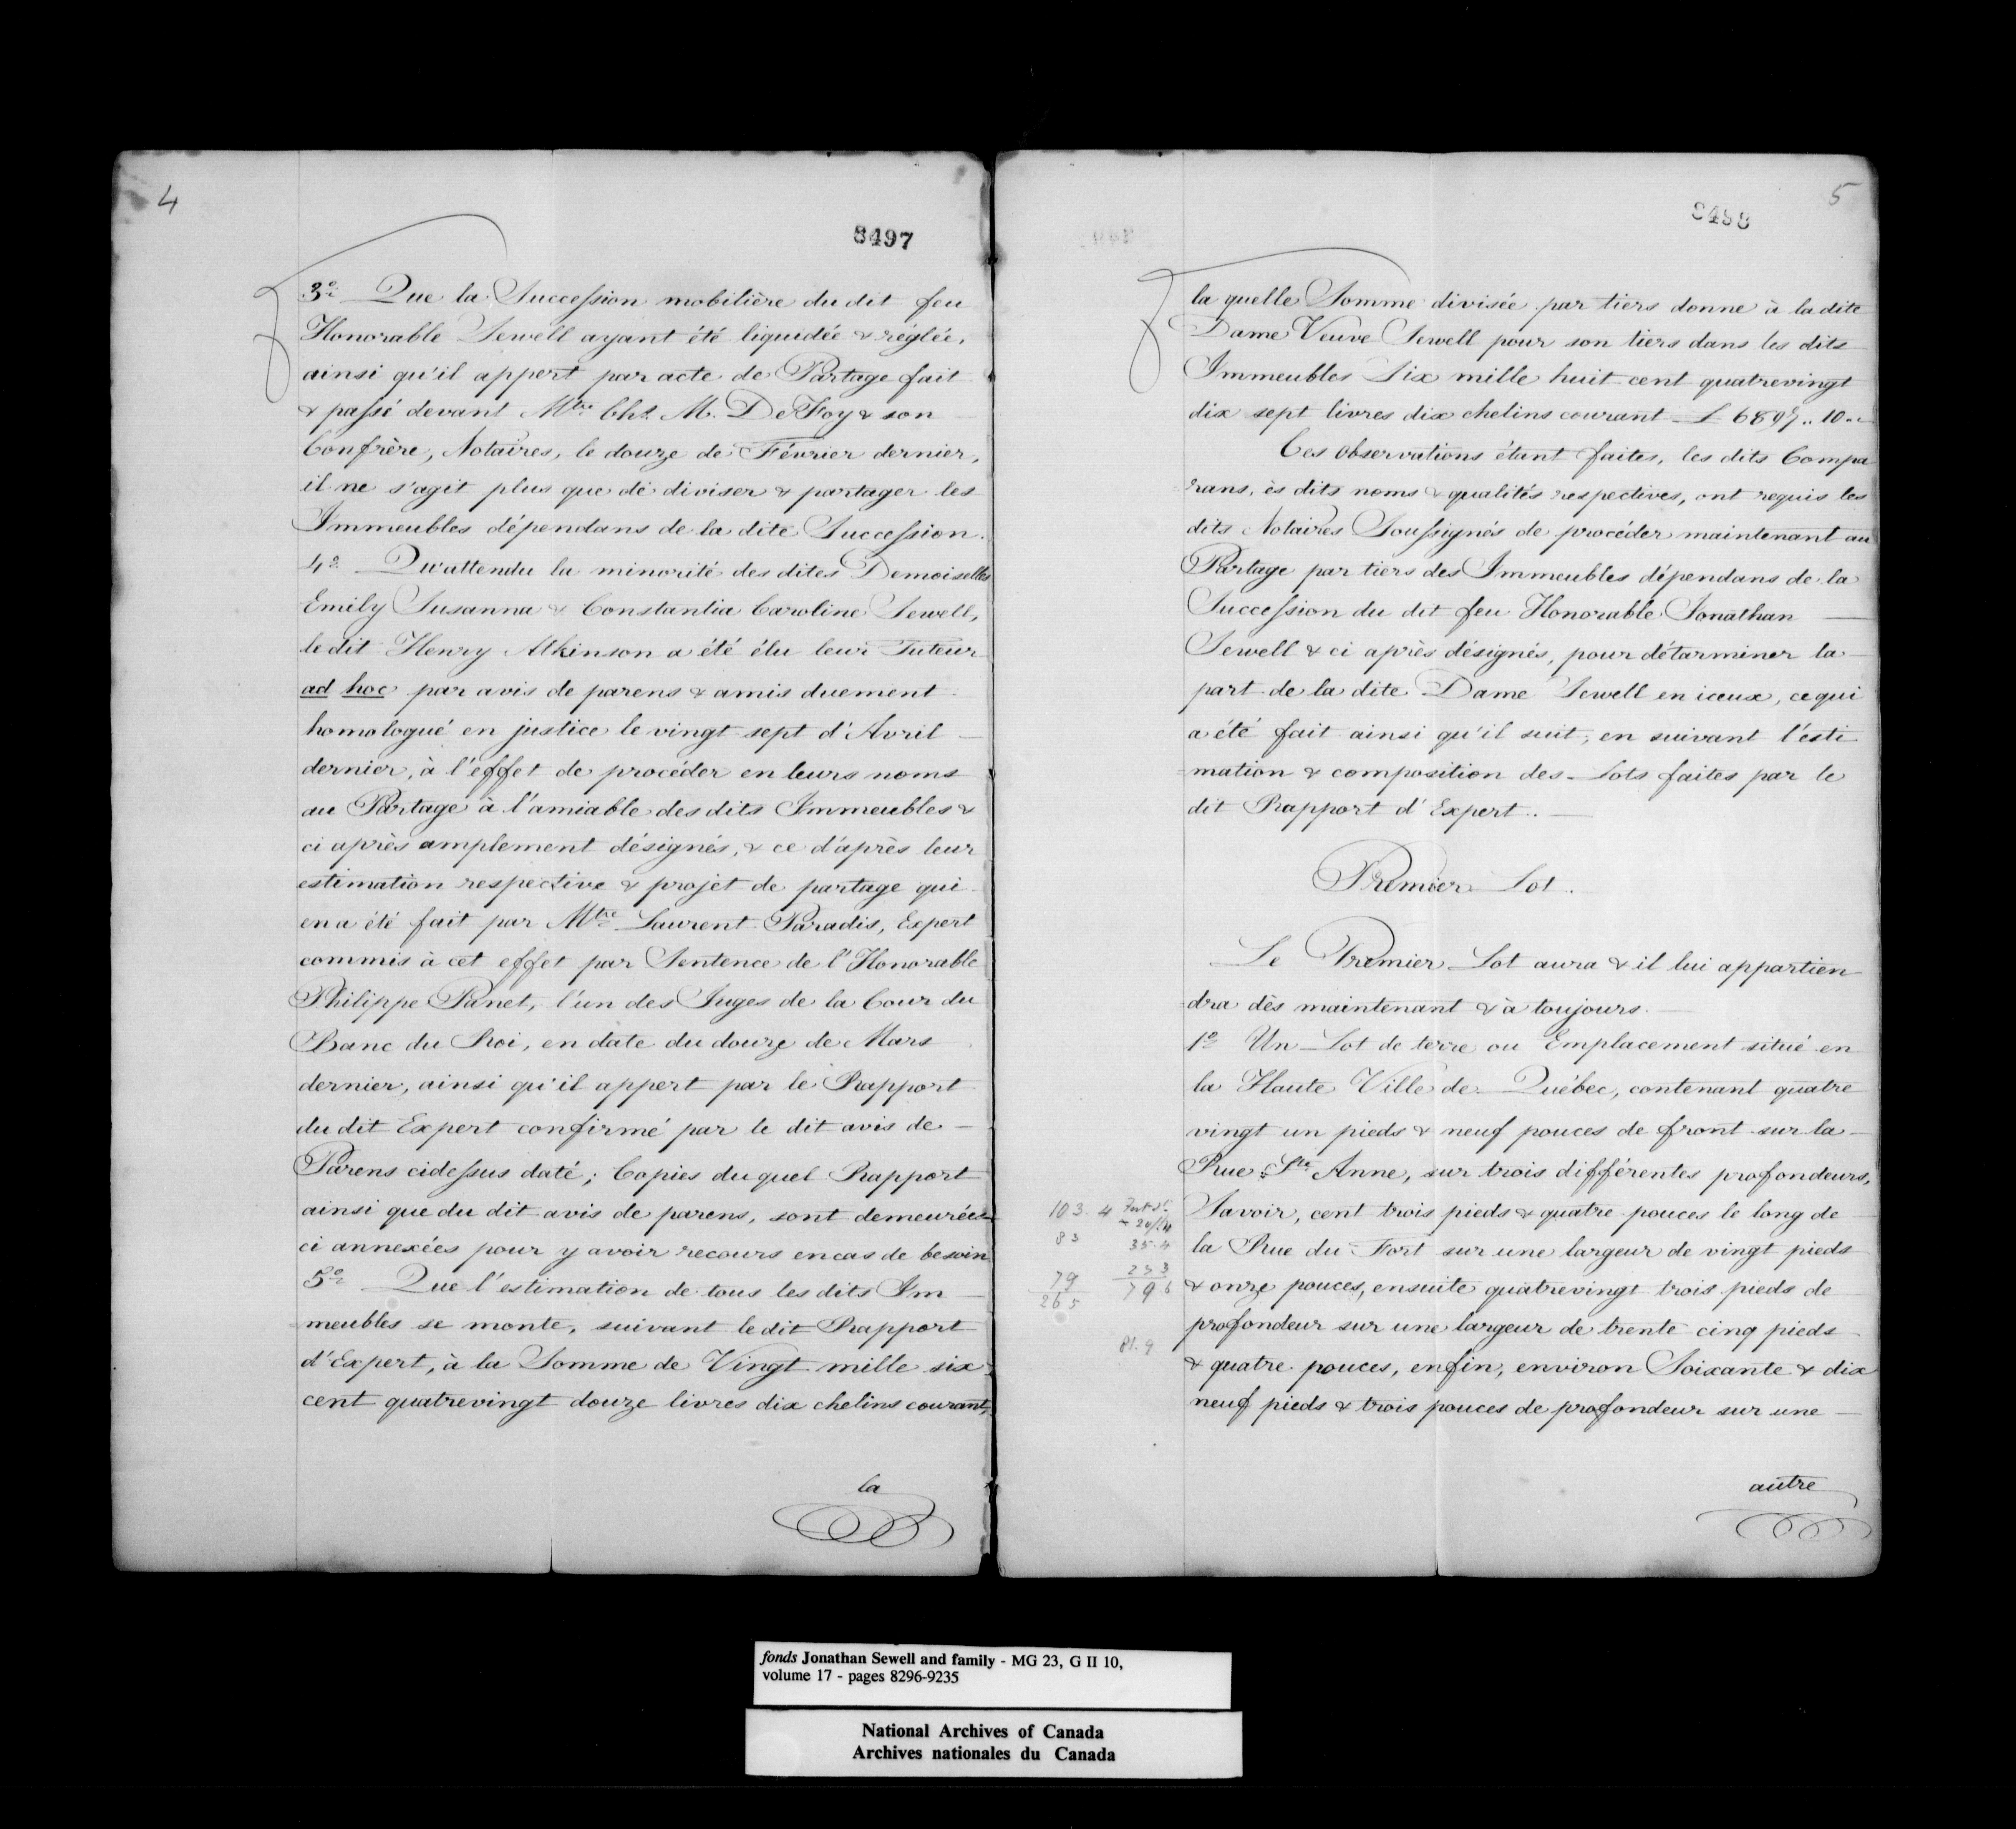 4
8497
3o. Que la Succession mobilière du dit feu
Honorable Sewell ayant été liquidée & réglée,
ainsi qu'il appert par acte de Partage fait
& passé devant Mtre Chs. M. DeFoy & son
Confrère, Notaires, le douze de Février dernier,
il ne s'agit plus que de diviser & partager les
Immeubles dépendans de la dite Succession.
4o. Qu'attendu la minorité des dites Demoiselles
Emily Susanna & Constantia Caroline Sewell,
le dit Henry Atkinson a été élu leur Tuteur
ad hoc par avis de parens & amis duement
homologué en justice le vingt sept d'Avril
dernier, à l'effet de procéder en leurs noms
au Partage à l'amiable des dits Immeubles &
ci après amplement désignés, & ce d'après leur
estimation respective & projet de partage qui
en a été fait par Mtre Laurent Paradis, Expert
commis à cet effet par Sentence de l'Honorable
Philippe Panet, l'un des Juges de la Cour du
Banc du Roi, en date du douze de Mars
dernier, ainsi qu'il appert par le Rapport
du dit Expert confirmé par le dit avis de
Parens cidessus daté; Copies du quel Rapport
ainsi que du dit avis de parens, sont demeurées
ci annexées pour y avoir recours en cas de besoin
5o. Que l'estimation de tous les dits Im
meubles se monte, suivant le dit Rapport
d'Expert, à la Somme de Vingt mille six
cent quatrevingt douze livres dix chelins courant,
la
5
8498
la quelle Somme divisée par tiers donne à la dite
Dame Veuve Sewell pour son tiers dans les dits
Immeubles Six mille huit cent quatrevingt
dix sept livres dix chelins courant £ 6897..10..
Ces observations étant faites, les dits Compa
rans, ès dits noms & qualités respectives, ont requis les
dits Notaires Soussignés de procéder maintenant au
Partage par tiers des Immeubles dépendans de la
Succession du dit feu Honorable Jonathan
Sewell & ci après désignés, pour détarminer la
part de la dite Dame Sewell en iceux, ce qui
a été fait ainsi qu'il suit, en suivant l'esti
mation & composition des Lots faites par le
dit Rapport d'Expert.
Premier Lot.
Le Premier Lot aura & il lui appartien
dra dès maintenant & à toujours.
1o. Un Lot de terre ou Emplacement situé en
la Haute Ville de Québec, contenant quatre
vingt un pieds & neuf pouces de front sur la
Rue Ste Anne, sur trois différentes profondeurs,
Savoir, cent trois pieds & quatre pouces le long de
la Rue du Fort sur une largeur de vingt pieds
& onze pouces, ensuite quatrevingt trois pieds de
profondeur sur une largeur de trente cinq pieds
& quatre pouces, enfin, environ Soixante & dix
neuf pieds & trois pouces de profondeur sur une
autre
103. 4
83
35.4
79
265
796
81.9
fonds Jonathan Sewell and family - MG 23, G II 10,
volume 17 - pages 8296-9235
National Archives of Canada
Archives nationales du Canada